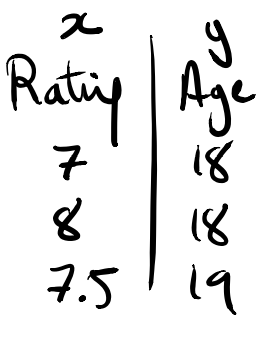 x y
Rating Age
7 18
8 18
7.5 19